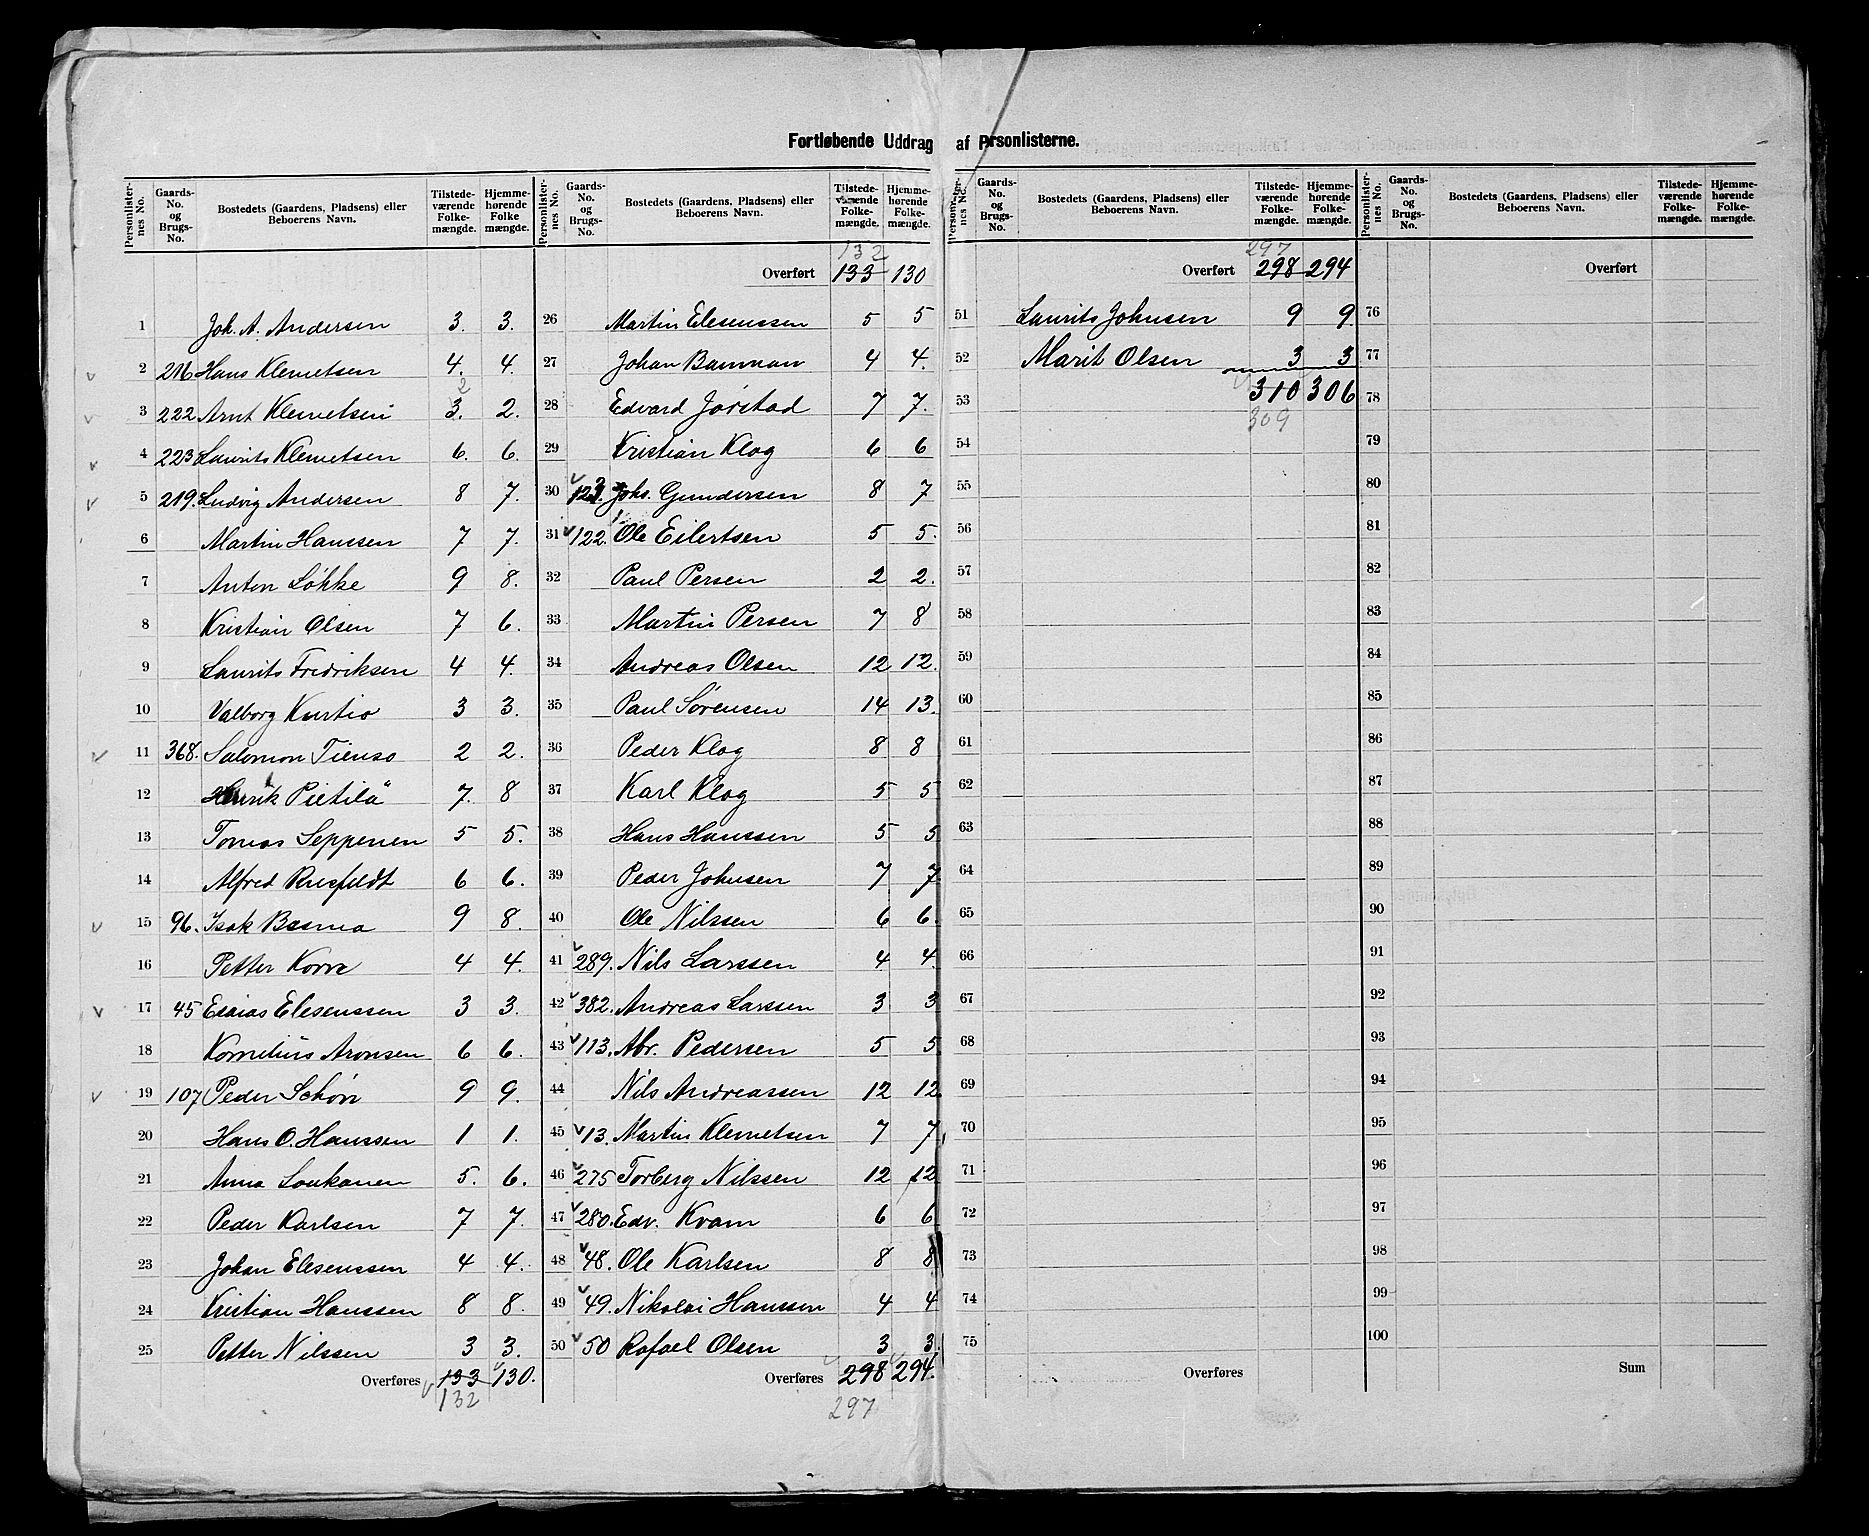 Fortløbende Uddrag af Prsonlisterne.
Personlister-nes No. | Gaards-No. og Brugs-No. | Bostedets (Gaardens, Pladsens) eller Beboerens Navn. | Tilstede-værende Folke-mængde. | Hjemme-hørende Folke mængde.
1 Joh. A. Andersen 3. 3.
2 216 Hans Klemetsen 4. 4.
3 222 Arnt Klemetsen 3. 2 2.
4 223 Laurits Klemetsen 6. 6.
5 219. Ludvig Andersen 8 7.
6 Martin Hanssen 7 7.
7 Anton Løkke 9 8.
8 Kristian Olsen 7 6.
9 Laurits Fredriksen 4 4.
10 Valborg Kurtio 3 3.
11 368. Salomon Tienso 2 2.
12 Henrik Pietilä 7. 8
13 Tomas Seppenen 5 5.
14 Alfred Ruefeldt 6 6.
15 96. Isak Basma 9 8.
16 Petter Korva 4 4.
17 45 Esaias Elesenssen 3 3.
18 Kornelius Aronsen 6 6.
19 107 Peder Schøn 9 9.
20 Hans O. Hanssen 1 1.
21 Anna Loukanen 5. 6.
22 Peder Karlsen 7 7.
23 Johan Elesenssen 4 4.
24 Kristian Hanssen 8 8.
25 Petter Nilssen 3 3.
Overføres 133 130.
132
Personlister-nes No. | Gaards-No. og Brugs-No. | Bostedets (Gaardens, Pladsens) eller Beboerens Navn. | Tilstede-værende Folke-mængde. | Hjemme-hørende Folke-mængde.
132
Overført 133 130
26 Martin Elesenssen 5 5
27 Johan Banman 4 4.
28 Edvard Jørstad 7 7.
29 Kristian Klog 6 6
30 123. Johs. Gundersen 8 7
31 122. Ole Eilertsen 5 5.
32 Paul Persen 2 2.
33 Martin Persen 7 8
34 Andreas Olsen 12 12.
35 Paul Sørensen 14 13.
36 Peder Klog 8 8
37 Karl Klog 5 5
38 Hans Hanssen 5 5
39 Peder Johnsen 7 7
40 Ole Nilssen 6 6.
41 289. Nils Larssen 4 4.
42 382. Andreas Larssen 3 3
43 113. Abr. Pedersen 5 5
44 Nils Andreassen 12 12
45 13. Martin Klemetsen 7 7
46 275 Torberg Nilssen 12 12
47 280. Edv. Kvam 6 6
48 48. Ole Karlsen 8 8
49 49. Nikolai Hanssen 4 4
50 50 Rafael Olsen 3 3.
Overføres 298 294.
297
Personlister-nes No. | Gaards-No. og Brugs-No. | Bostedets (Gaardens, Pladsens) eller Beboerens Navn. | Tilstede-værende Folke-mængde. | Hjemme-hørende Folke-mængde.
297
Overført 298 294
51 Laurits Johnsen 9 9
52 Marit Olsen 3 3
53 310 306
309
54
55
56
57
58
59
60
61
62
63
64
65
66
67
68
69
70
71
72
73
74
75
Overføres
Personlister-nes No. | Gaards-No. og Brugs-No. | Bostedets (Gaardens, Pladsens) eller Beboerens Navn. | Tilstede-værende Folke-mængde. | Hjemme-hørende Folke-mængde.
Overført
76
77
78
79
80
81
82
83
84
85
86
87
88
89
90
91
92
93
94
95
96
97
98
99
100
Sum